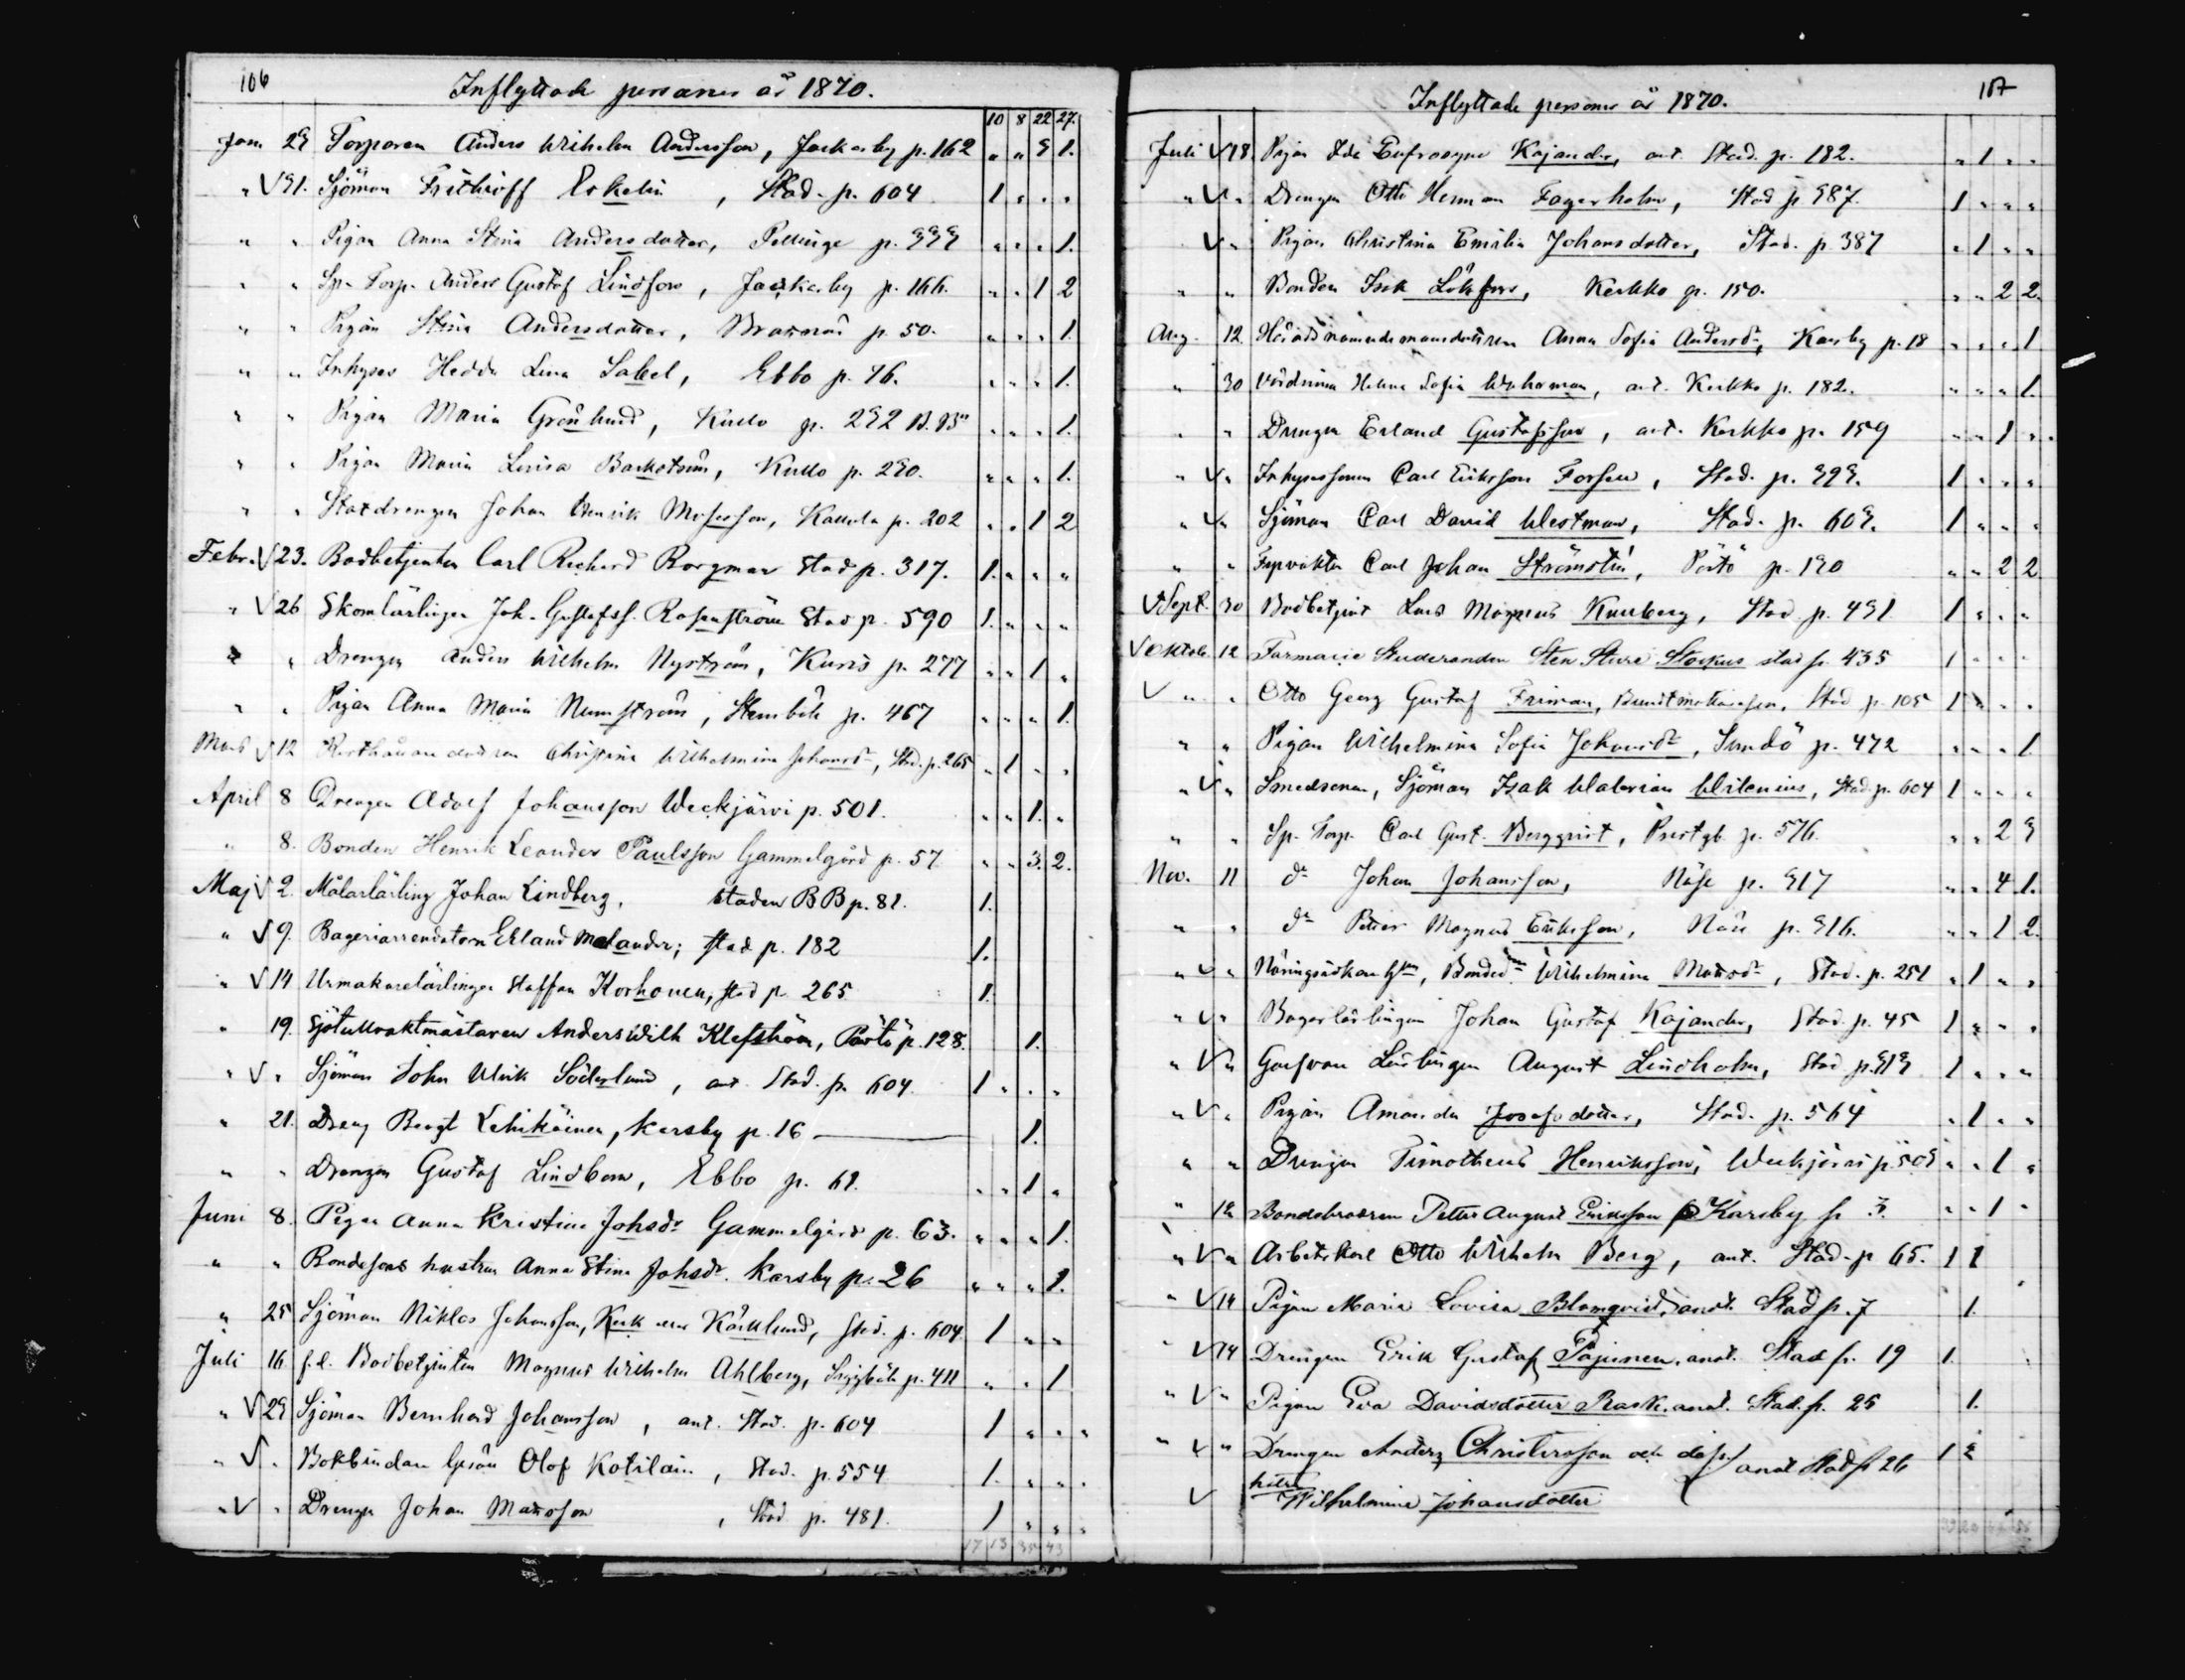 106
Inflyttade personer år 1870.
10 8 22 27.
Jan. 29 Torparen Anders Wilhelm Andersson, Jackarby p. 162 " " 3 1.
" V 31. Sjöman Frithioff Eskelin, Stad. p. 604 1 " " "
" " Pigan Anna Stina Andersdotter, Pellinge p. 333 " " " 1.
" " Sp. Torp. Anders Gustaf Lindfors, Jackarby p. 166. " " 1 2
" " Pigan Stina Andersdotter, p. 50. " " " 1.
" " Inhyses Hedda Lena Sabel, Ebbo p. 76. " " " 1.
" " Pigan Maria Grönlund, Kullo p. 232 " " " 1.
" " Pigan Maria Lovisa Backström, Kullo p. 230. " " " 1.
" " Statdrengen Johan Henrik Mosesson, p. 202 " " 1 2
Febr. V 23. Bodbetjenten Carl Richard Borgman Stad p. 317. 1. " " "
" V 26 Skomlärlingen Joh. Gustafss. Rosenström Stad p. 590 1. " " "
" " Drengen Anders Wilhelm Nyström, Kuris p. 277 " " 1 "
" " Pigan Anna Maria Numström, Stensböle p. 467 " " " 1.
Mars V 12 Christina Wilhelmina Johansdr, Stad. p. 265 " 1 " "
April 8 Drengen Adolf Johansson Weckjärvi p. 501. " " 1. "
" 8. Bonden Henrik Leander Paulsson Gammelgård p. 57 " " 3. 2.
Maj V 2. Målarlärling Johan Lindberg, staden BB p. 81. 1.
" V 9. Bageriarrendatorn Erland Melander; stad p. 182 1.
" V 14 Urmakarelärlingen Staffan Korhonen, stad p. 265 1.
" 19. Sjötullvaktmästaren Anders Wilh Klefström, Pörtö p. 128. 1.
" V " Sjöman John Ulrik Söderlund, ant. Stad. p. 604. 1 " " "
" 21. Dreng Bengt Lehikäinen, Karsby p. 16 1.
" " Drengen Gustaf Lindbom, Ebbo p. 61. " " 1 "
Juni 8. Pigan Anna Kristina Johsdr Gammelgård p. 63. " " " 1.
" " Bondesons hustru Anna Stina Johsdr. Karsby p. 26 " " " 1.
" 25 Sjöman Niklas Johansson, Kark Karklund, Stad. p. 604 1 " "
Juli 16 f.d. Bodbetjenten Magnus Wilhelm Ahlberg, Siggböle p. 411 " " 1
" V 23 Sjöman Bernhard Johansson, ant. Stad. p. 604 1 " " "
" V " Bokbindare Gesän Olof Kotilain, Stad. p. 554 1. " " "
" V " Drengen Johan Matsson, Stad p. 481. 1 " " "
17 13 35 43
107
Inflyttade personer år 1870.
Juli V 18 Pigan Ida Eufrosyne Kajander, ant. Stad. p. 182. " 1 " "
" V " Drengen Otto Herman Fagerholm, Stad p. 387. 1 " " "
V " Pigan Christina Emilia Johansdotter, Stad. p. 387 " 1 " "
" " Bonden Isak Löfors, Kerkko p. 150. " " 2 2.
Aug. 12 Häradsnämndemansdottren Anna Sofia Andersdr, Karsby p. 18 " " " 1
" 30 Värdinna Helena Sofia ant. Kerkko p. 182. " " " 1.
" " Drengen Erland Gustafsson, ant. Kerkko p. 159 " " 1 "
" V " Inhysessonen Carl Eriksson Forsen, Stad. p. 393. 1 " " "
" V " Sjöman Carl David Westman, Stad. p. 603. 1 " " "
" " Fyrvaktn Carl Johan Strömsten, Pörtö p. 130 " " 2 2
V Sept. 30 Bodbetjent Lars Magnus Karlberg, Stad. p. 431 1 " " "
V Oktob. 12 Farmacie Studeranden Sten Sture Stockus stad p. 435 1 " " "
V " " Otto Georg Gustaf Friman, Stad p. 105 1 " " "
" " Pigan Wilhelmina Sofia Johansdr, Sundö p. 472 " " " 1.
" V " Smedsonen, Sjöman Isak Walerian Wilenius, Stad. p. 604 1 " " "
" " Sp. Torp. Carl Gust. Bergqvist, Prestgb. p. 576. " " 2 3
Nov. 11 do Johan Johansson, Näse p. 317 " " 4 1.
" " do Petter Magnus Eriksson, Näse p. 316. " " 1 2.
" V " Wilhelmina Matsdr, Stad. p. 251 " 1 " "
" V " Bagarlärlingen Johan Gustaf Kajander, Stad. p. 45 1 " " "
" V " Garfvare Lärlingen August Lindholm, Stad p. 313 1 " " "
" V " Pigan Amanda Josefsdotter, Stad. p. 564 " 1 " "
" " Drengen Timotheus Henriksson, Weckjärvi p. 503 " " 1 "
" 12 Bondebrodren Petter August Eriksson Karsby p. 3. " " 1 "
" V " Arbetskarl Otto Wilhelm Berg, ant. Stad. p. 65. 1 1
" V 14 Pigan Maria Lovisa Blomqvist, anst. Stad p. 7 1.
" V 14 Drengen Erik Gustaf Pajunen, anst. Stad p. 19 1.
" V " Pigan Eva Davidsdotter Rask, anst. Stad. p. 25 1.
" V " Drengen Anders Christersson och dess anst Stad p 26 1
V hustru Wilhelmina Johansdotter